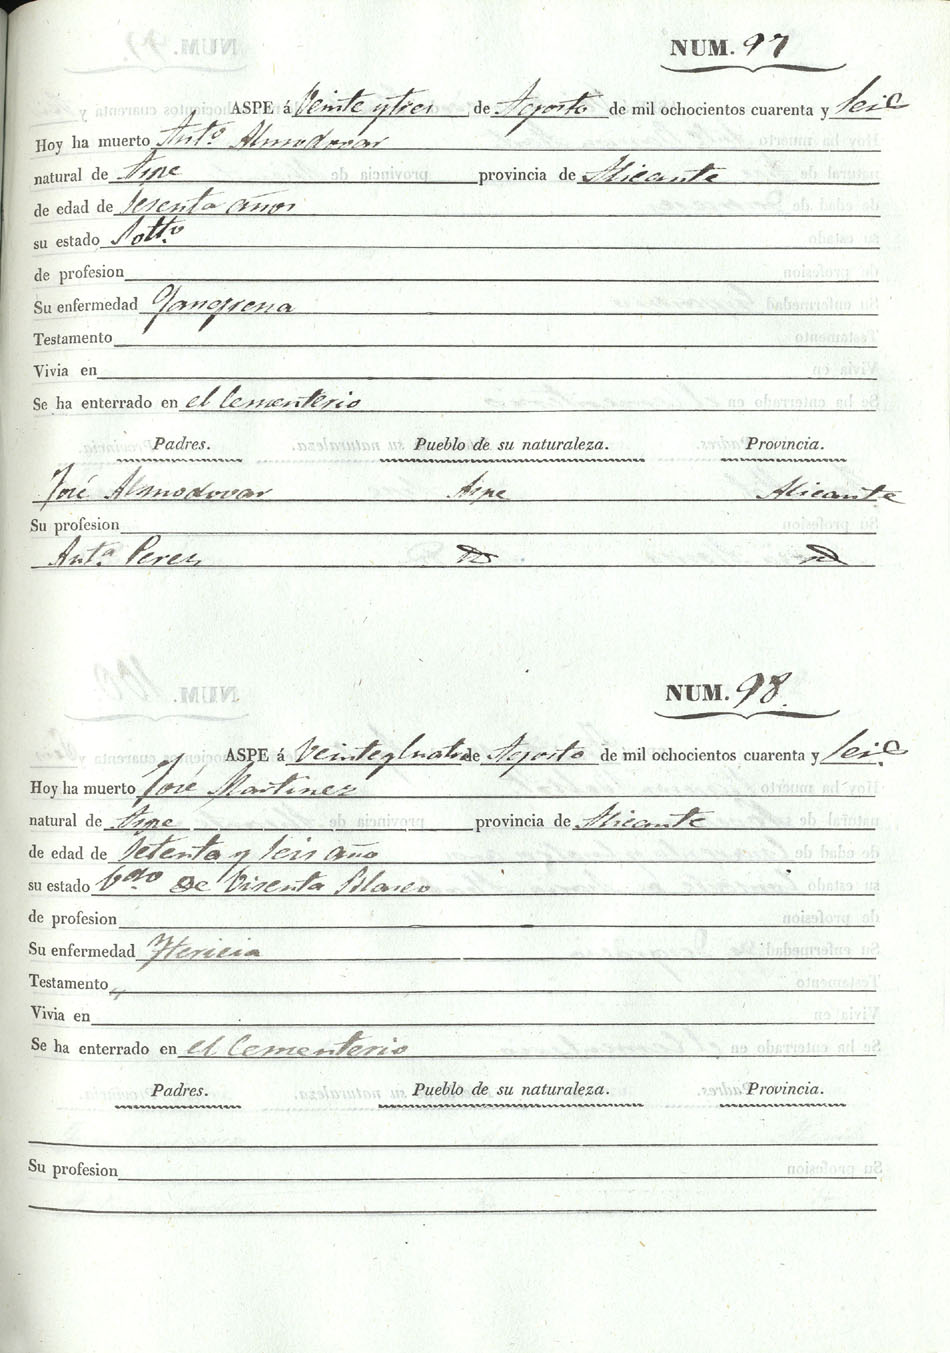 NUM. 97
ASPE á Veinte y tres de Agosto de mil ochocientos cuarenta y seis
Hoy ha muerto Antº Almodovar
natural de Aspe provincia de Alicante
de edad de sesenta años
su estado Soltº
de profesion
Su enfermedad Gangrena
Testamento
Vivia en
Se ha enterrado en el Cementerio
Padres. Pueblo de su naturaleza. Provincia.
José Almodovar Aspe Alicante
Su profesion
Antª Perez
NUM. 98.
ASPE á Veinteyquatro de Agosto de mil ochocientos cuarenta y seis
Hoy ha muerto José Martinez
natural de Aspe provincia de Alicante
de edad de Setenta y seis año
su estado Vdo de Visenta Blasco
de profesion
Su enfermedad Itericia
Testamento
Vivia en
Se ha enterrado en el Cementerio
Padres. Pueblo de su naturaleza. Provincia.
Su profesion